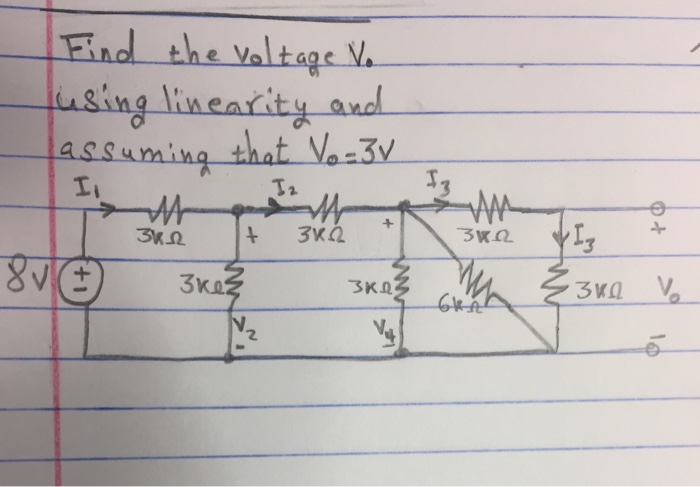 Find the voltage Vo
using linearity and
assuming that Vo = 3V
I1 I2 I3
3KΩ 3KΩ 3KΩ
+ + I3 +
8V + - 3KΩ 3KΩ 6KΩ 3KΩ Vo
V2 V4
- - -